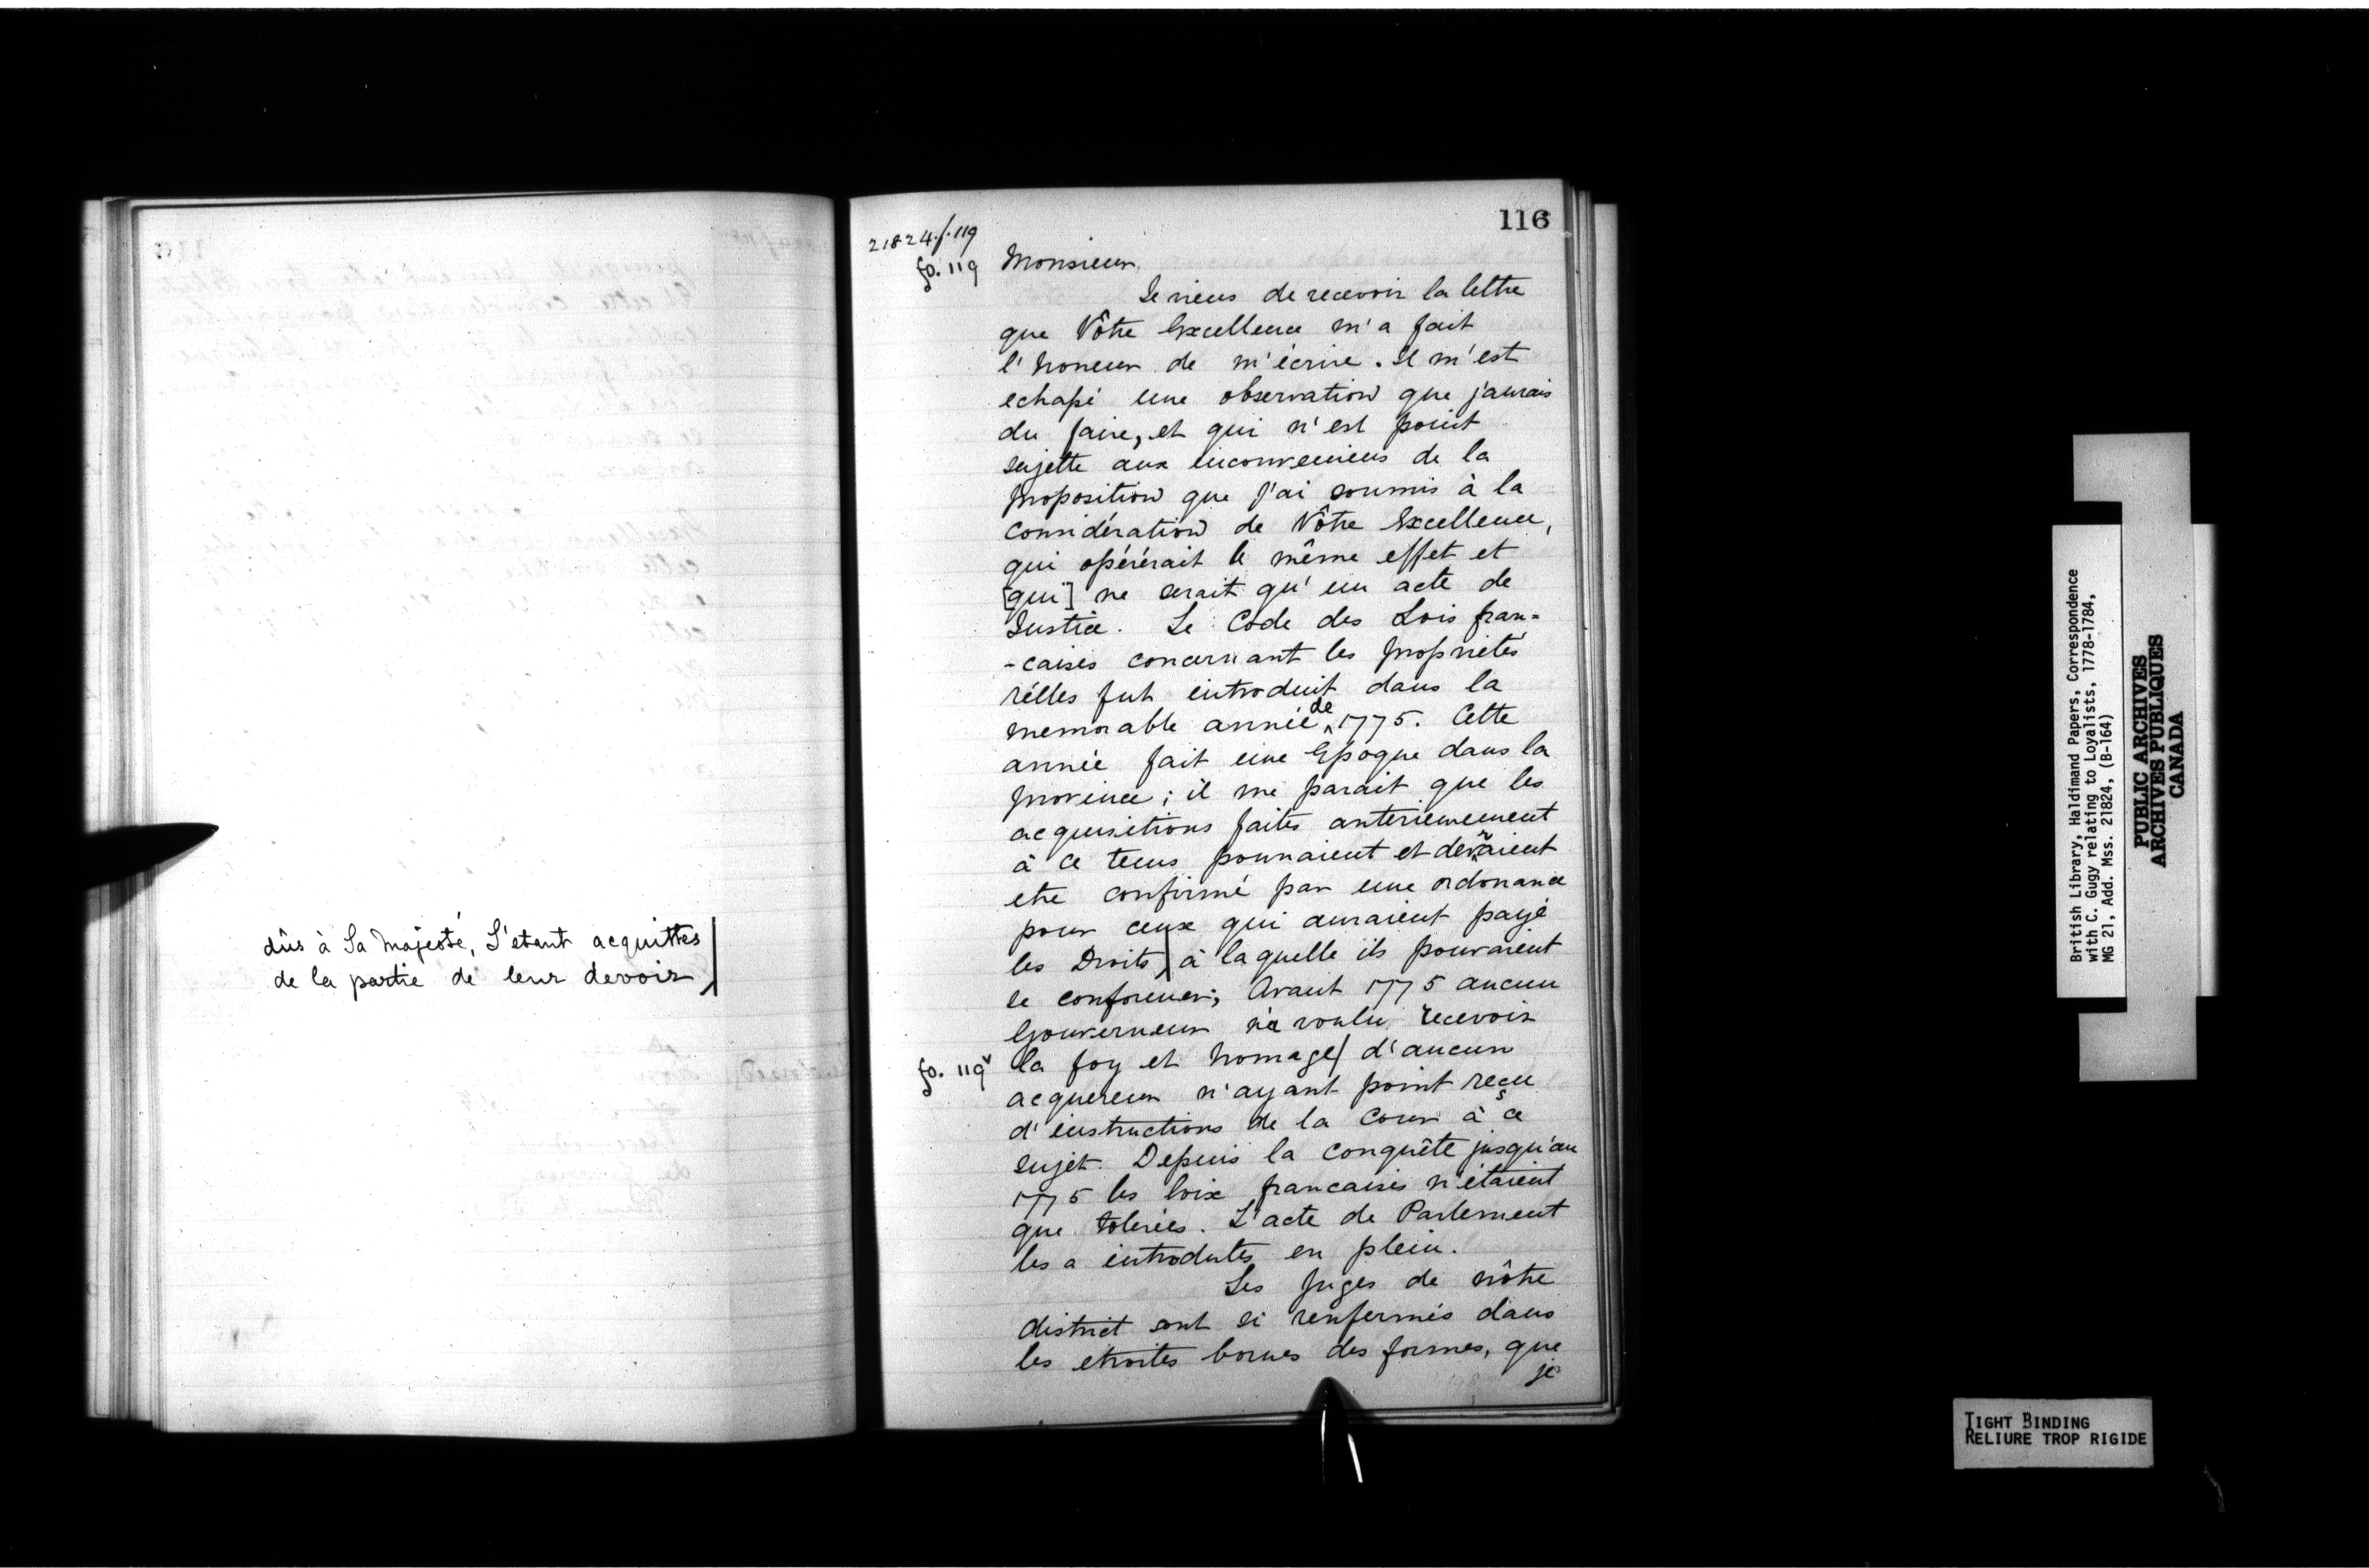 dûs à Sa Majesté, S'etant acquittes
de la partie de leur devoir
116
21824.f.119
fo. 119
Monsieur,
Je viens de recevoir la lettre
que Vôtre Excellence m'a fait
l'honeur de m'écrire. Il m'est
echapé une observation que j'aurais
du faire, et qui n'est point
sujette aux inconveniens de la
proposition que j'ai soumis à la
Considération de Vôtre Excellence,
qui opérérait le même effet et
[qui] ne serait qu'un acte de
Justice. Le Code des Lois fran-
-caises concernant les propriétés
réélles fut introduit dans la
memorable année de 1775. Cette
année fait une Epoque dans la
province; il me parait que les
acquisitions faites anterieurement
à ce tems pourraient et devraient
etre confirmé par une ordonance
pour ceux qui auraient payé
les Droits à laquelle ils pouraient
se conformer; Avant 1775 aucun
Gouverneur n'a voulu recevoir
fo. 119v
la foy et homage/ d'aucun
acquereur n'ayant point reçu
d'instructions de la Cour à ce
sujet. Depuis la Conquête jusqu'au
1775 les loix francaises n'étaient
que tolerées. L'acte de Parlement
les a introdutes en plein.
Les Juges de nôtre
district sont si renfermés dans
les etroites bornes des formes, que
je
British Library, Haldimand Papers, Correspondence
with C. Gugy relating to Loyalists, 1778-1784,
MG 21, Add. Mss. 21824, (B-164)
PUBLIC ARCHIVES
ARCHIVES PUBLIQUES
CANADA
TIGHT BINDING
RELIURE TROP RIGIDE